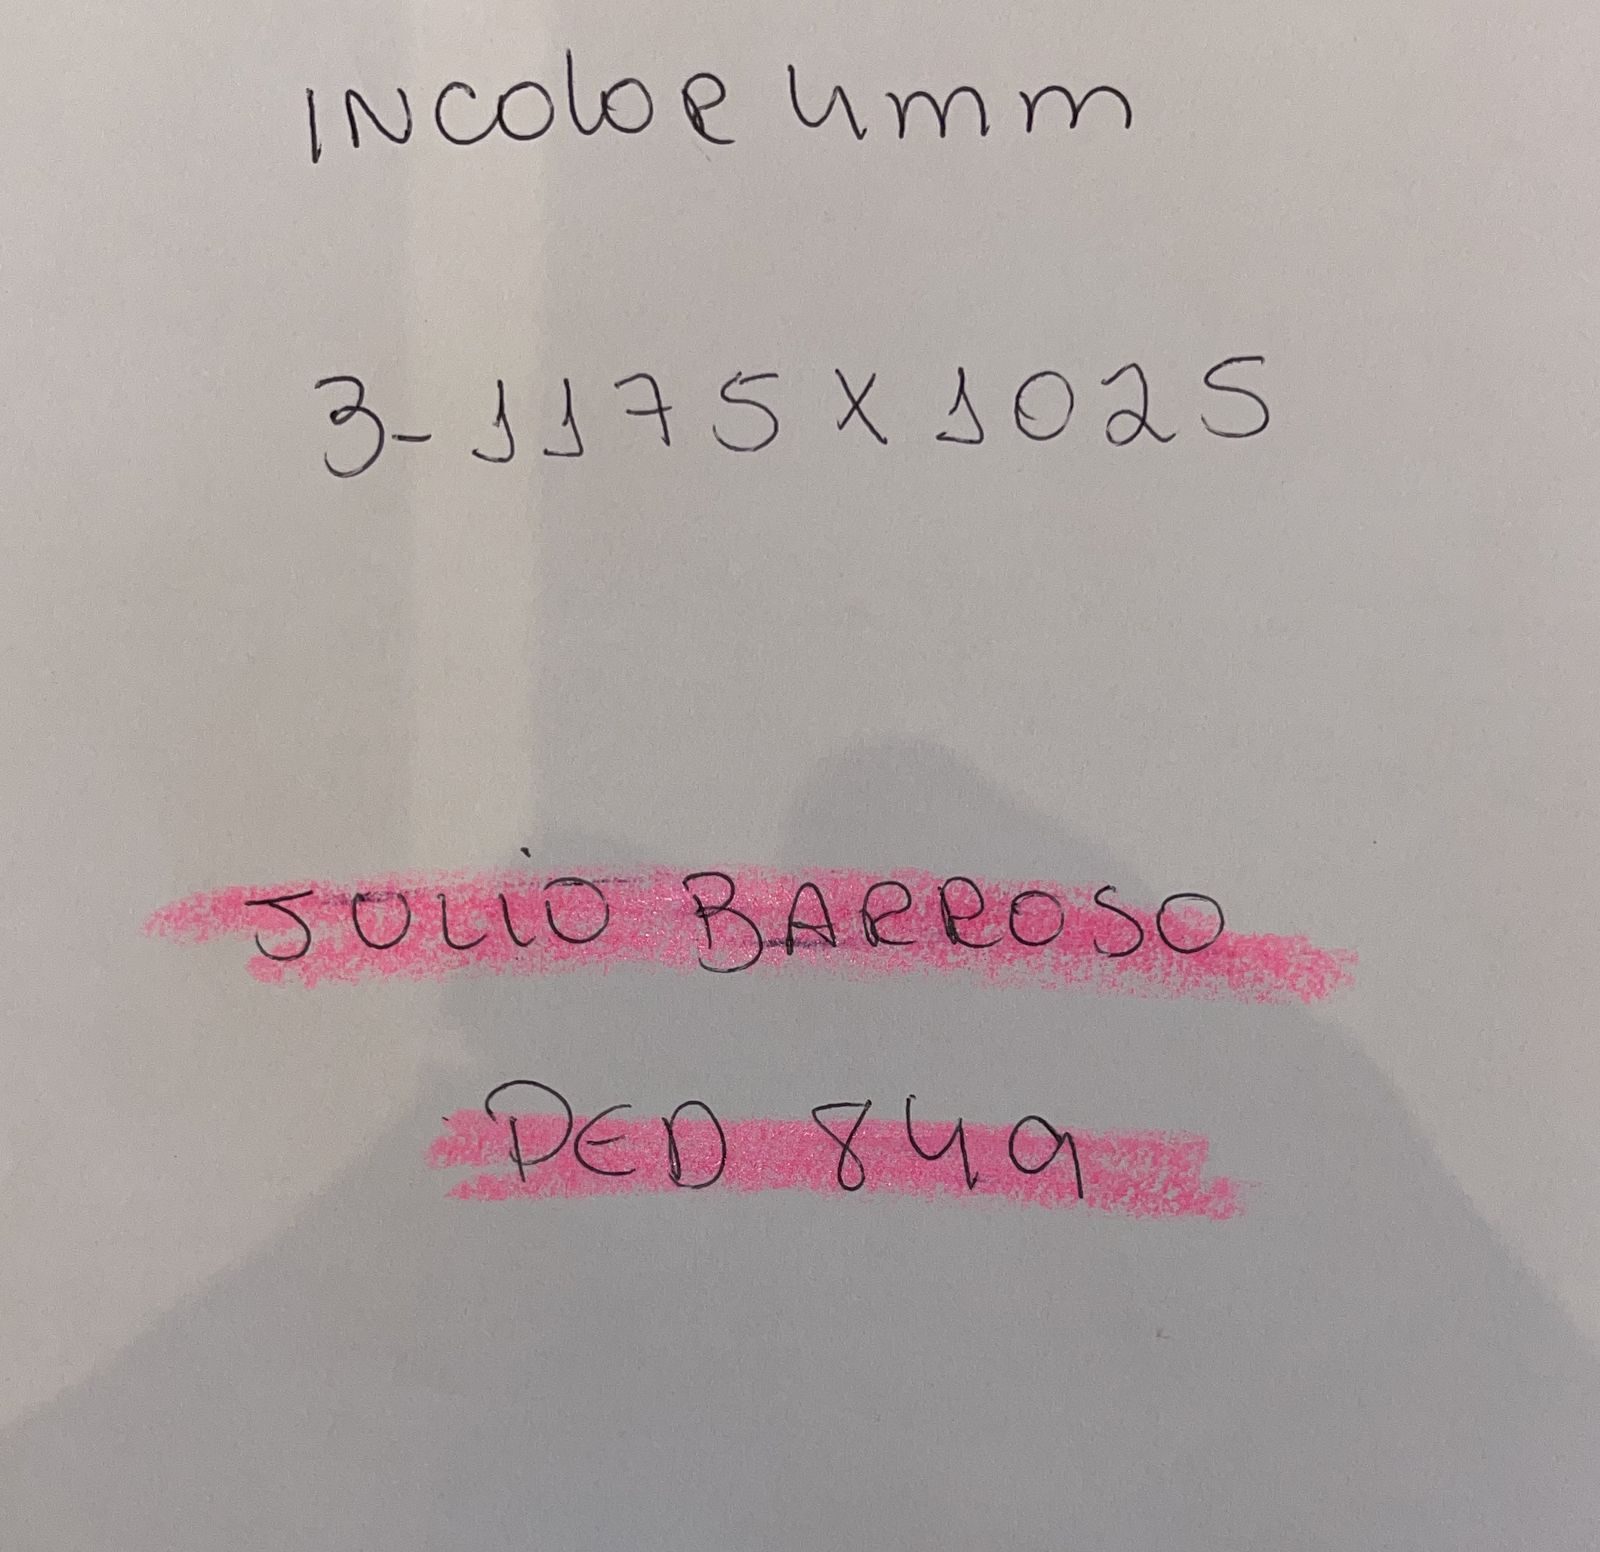 INCOLOR 4mm
3-1175 X 1025
JULIO BARROSO
PED 849